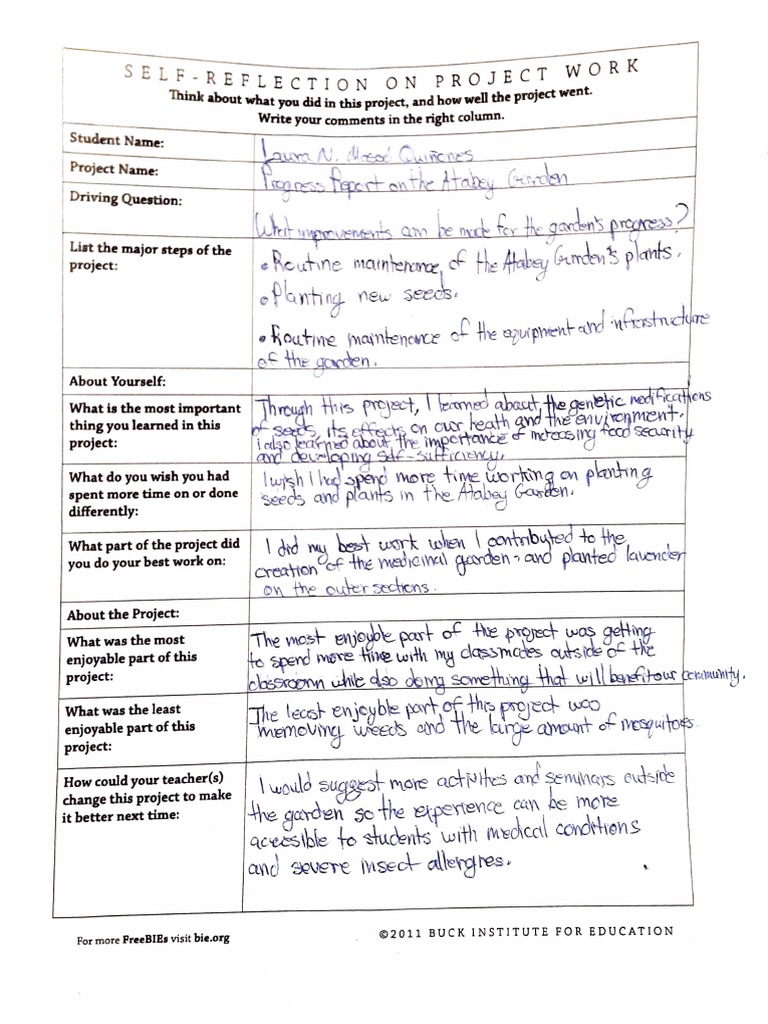 SELF-REFLECTION ON PROJECT WORK
Think about what you did in this project, and how well the project went.
Write your comments in the right column.
Student Name:
Laura N. Quiñones
Project Name:
Progress Report on the Atabey Garden
Driving Question:
What improvements can be made for the garden's progress?
List the major steps of the
project:
• Routine maintenance of the Atabey Garden's plants.
• Planting new seeds.
• Routine maintenance of the equipment and infrastructure
of the garden.
About Yourself:
What is the most important
thing you learned in this
project:
Through this project, I learned about the genetic modifications
of seeds, its effects on our heath and the environment.
I also learned about the importance of increasing food security
and developing self-sufficiency.
What do you wish you had
spent more time on or done
differently:
I wish I had spend more time working on planting
seeds and plants in the Atabey Garden.
What part of the project did
you do your best work on:
I did my best work when I contributed to the
creation of the medicinal garden, and planted lavender
on the outer sections.
About the Project:
What was the most
enjoyable part of this
project:
The most enjoyble part of the project was getting
to spend more time with my classmades outside of the
classroom while also doing something that will benefit our community.
What was the least
enjoyable part of this
project:
The least enjoyble part of this project was
memoving weeds and the large amount of mosquitoes.
How could your teacher(s)
change this project to make
it better next time:
I would suggest more activities and seminars outside
the garden so the experience can be more
accesible to students with medical conditions
and severe insect allergies.
For more FreeBIEs visit bie.org
©2011 BUCK INSTITUTE FOR EDUCATION